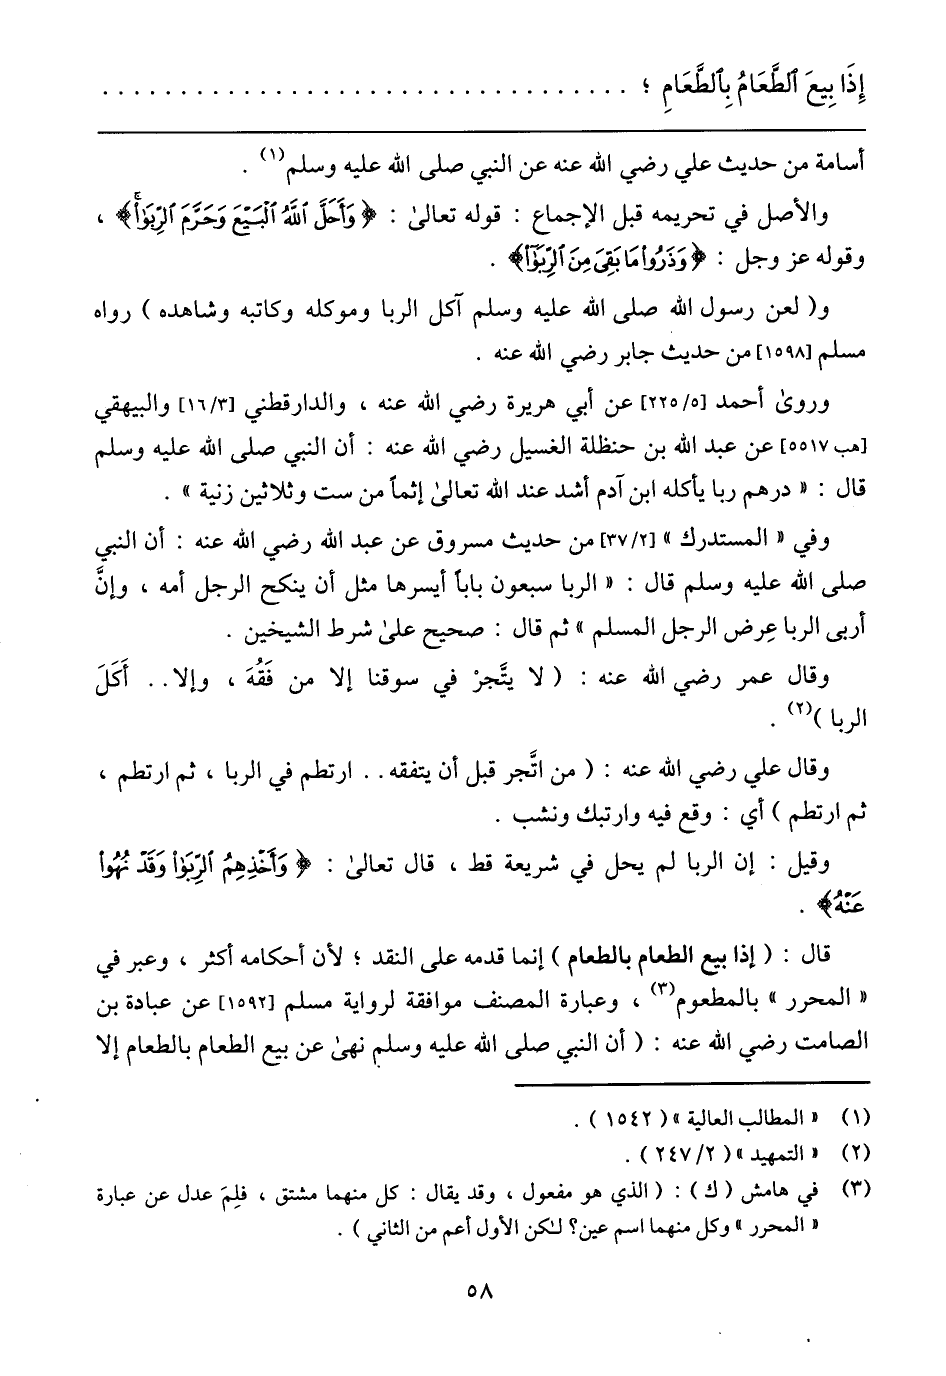 إِذَا بِيعَ ٱلطَّعَامُ بِٱلطَّعَامِ ؛ . . . . . . . . . . . . . . . . . . . . . . . . . . . . . . . . . .
أسامة من حديث علي رضي الله عنه عن النبي صلى الله عليه وسلم(١) .
والأصل في تحريمه قبل الإجماع : قوله تعالىٰ : ﴿ وَأَحَلَّ ٱللَّهُ ٱلْبَيْعَ وَحَرَّمَ ٱلرِّبَوٰاْۚ ﴾ ،
وقوله عز وجل : ﴿ وَذَرُواْ مَا بَقِىَ مِنَ ٱلرِّبَوٰٓاْ ﴾ .
و( لعن رسول الله صلى الله عليه وسلم آكل الربا وموكله وكاتبه وشاهده ) رواه
مسلم [١٥٩٨] من حديث جابر رضي الله عنه .
وروىٰ أحمد [٢٢٥/٥] عن أبي هريرة رضي الله عنه ، والدارقطني [١٦/٣] والبيهقي
[هب ٥٥١٧] عن عبد الله بن حنظلة الغسيل رضي الله عنه : أن النبي صلى الله عليه وسلم
قال : « درهم ربا يأكله ابن آدم أشد عند الله تعالىٰ إثماً من ست وثلاثين زنية » .
وفي « المستدرك » [٣٧/٢] من حديث مسروق عن عبد الله رضي الله عنه : أن النبي
صلى الله عليه وسلم قال : « الربا سبعون باباً أيسرها مثل أن ينكح الرجل أمه ، وإنَّ
أربى الربا عِرض الرجل المسلم » ثم قال : صحيح علىٰ شرط الشيخين .
وقال عمر رضي الله عنه : ( لا يتَّجرْ في سوقنا إلا من فَقُهَ ، وإلا . . أَكَلَ
الربا )(٢) .
وقال علي رضي الله عنه : ( من اتَّجر قبل أن يتفقه . . ارتطم في الربا ، ثم ارتطم ،
ثم ارتطم ) أي : وقع فيه وارتبك ونشب .
وقيل : إن الربا لم يحل في شريعة قط ، قال تعالىٰ : ﴿ وَأَخْذِهِمُ ٱلرِّبَوٰاْ وَقَدْ نُهُواْ
عَنْهُ ﴾ .
قال : ( إذا بيع الطعام بالطعام ) إنما قدمه على النقد ؛ لأن أحكامه أكثر ، وعبر في
« المحرر » بالمطعوم(٣) ، وعبارة المصنف موافقة لرواية مسلم [١٥٩٢] عن عبادة بن
الصامت رضي الله عنه : ( أن النبي صلى الله عليه وسلم نهىٰ عن بيع الطعام بالطعام إلا
(١) « المطالب العالية » ( ١٥٤٢ ) .
(٢) « التمهيد » ( ٢٤٧/٢ ) .
(٣) في هامش ( ك ) : ( الذي هو مفعول ، وقد يقال : كل منهما مشتق ، فلِمَ عدل عن عبارة
« المحرر » وكل منهما اسم عين؟ لـٰكن الأول أعم من الثاني ) .
٥٨